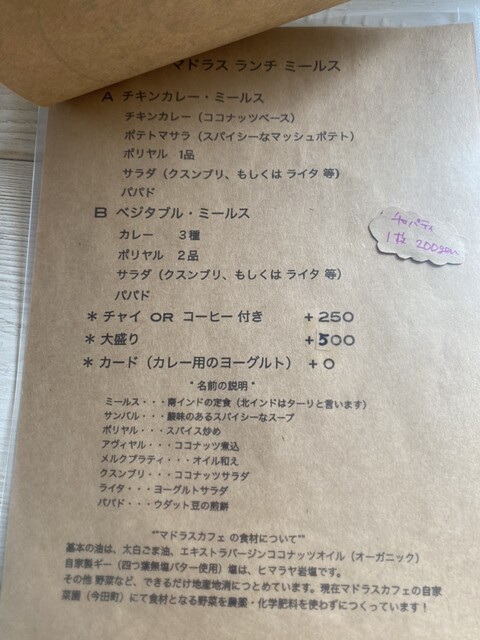 マドラス ランチ ミールス
A チキンカレー・ミールス
チキンカレー（ココナッツベース）
ポテトマサラ（スパイシーなマッシュポテト）
ポリヤル 1品
サラダ（クスンブリ、もしくは ライタ 等）
パパド
B ベジタブル・ミールス
カレー 3種
ポリヤル 2品
サラダ（クスンブリ、もしくは ライタ 等）
パパド
チャパティ
1枚 200yen
＊ チャイ OR コーヒー 付き +250
＊ 大盛り +300
＊ カード（カレー用のヨーグルト） +0
＊名前の説明＊
ミールス・・・南インドの定食（北インドはターリと言います）
サンバル・・・酸味のあるスパイシーなスープ
ポリヤル・・・スパイス炒め
アヴィヤル・・・ココナッツ煮込
メルクプラティ・・・オイル和え
クスンブリ・・・ココナッツサラダ
ライタ・・・ヨーグルトサラダ
パパド・・・ウダット豆の煎餅
""マドラスカフェ の食材について""
基本の油は、太白ごま油、エキストラバージンココナッツオイル（オーガニック）
自家製ギー（四つ葉無塩バター使用）塩は、ヒマラヤ岩塩です。
その他 野菜など、できるだけ地産地消につとめています。現在マドラスカフェの自家
菜園（今田町）にて食材となる野菜を農薬・化学肥料を使わずにつくっています！